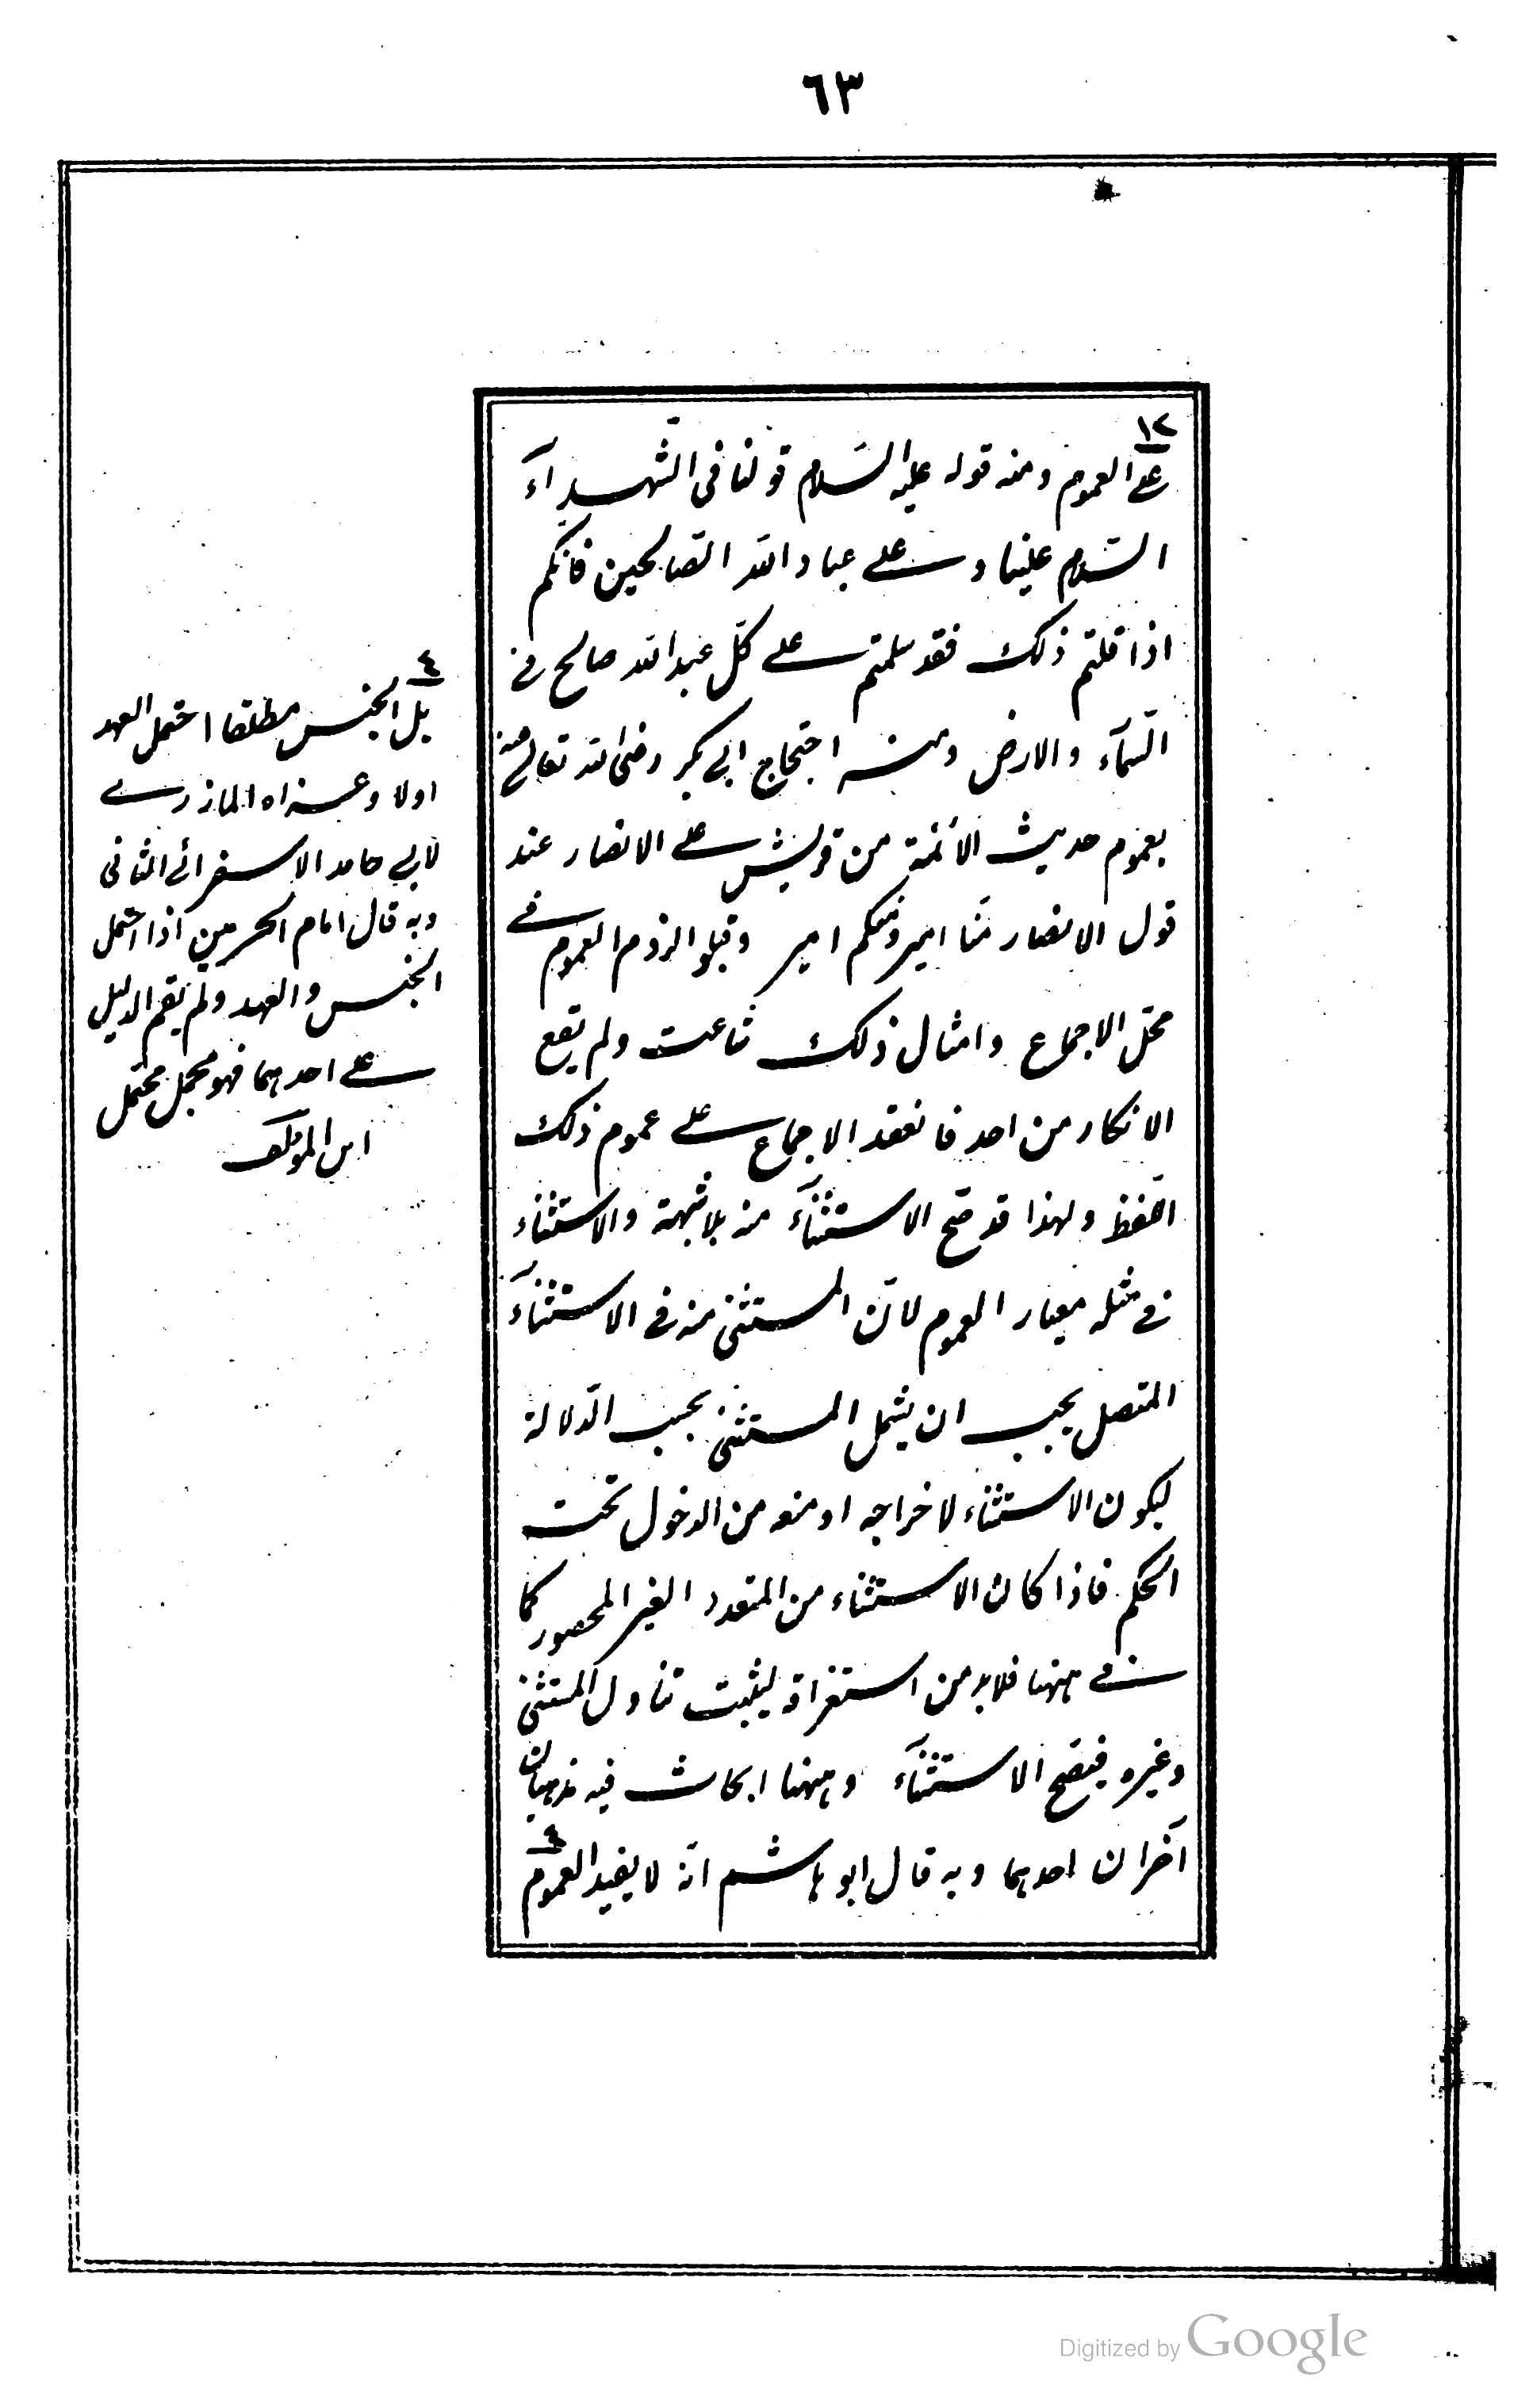 ٦٣
١٢
على العموم ومنه قوله عليه السّلام قولنا فى التّشهـد آء
السّلام علينا وعلى عباد الله الصّالحين فانكم
اذا قلتم ذلك فقد سلمتم على كلّ عبد الله صالح فى
السّمآء والارض ومنه احتجاج ابى بكر رضى الله تعالى عنه
بعموم حديث الأئمة من قريش على الانصار عند
قول الانصار منّا امير ومنكم امير وقبلوا لزوم العموم فى
محلّ الاجماع وامثال ذلك شاعت ولم يقع
الانكار من احد فانعقد الاجماع على عموم ذلك
اللّفظ ولهذا قد صّح الاستثنآء منه بلا شبهة والاستثناء
فى مثله معيار العموم لانّ المستثنى منه فى الاستثنآء
المتصل يجب ان يشمل المستثنى بحسب الّدلالة
ليكون الاستثناء لاخراجه او منعه من الدخول تحت
الحكم فاذا كان الاستثناء من المتعدد الغير المحصور كما
فى ههنا فلابد من استغراقه ليثبت تناول المستثنى
وغيره فيصّح الاستثنآء وههنا ابحاث فيه مذهبان
آخران احدهما وبه قال ابو هاشم انّه لا يفيد العموم
٤
٤
بل الجنس مطلقا احتمل العهد
اولا وعزاه المازرى
لابى حامد الاسفرائى الثانى
وبه قال امام الحرمين اذا احتمل
الجنس والعهد ولم يقم الدليل
على احدهما فهو مجمل محتمل
ابن المؤلف
Digitized by Google